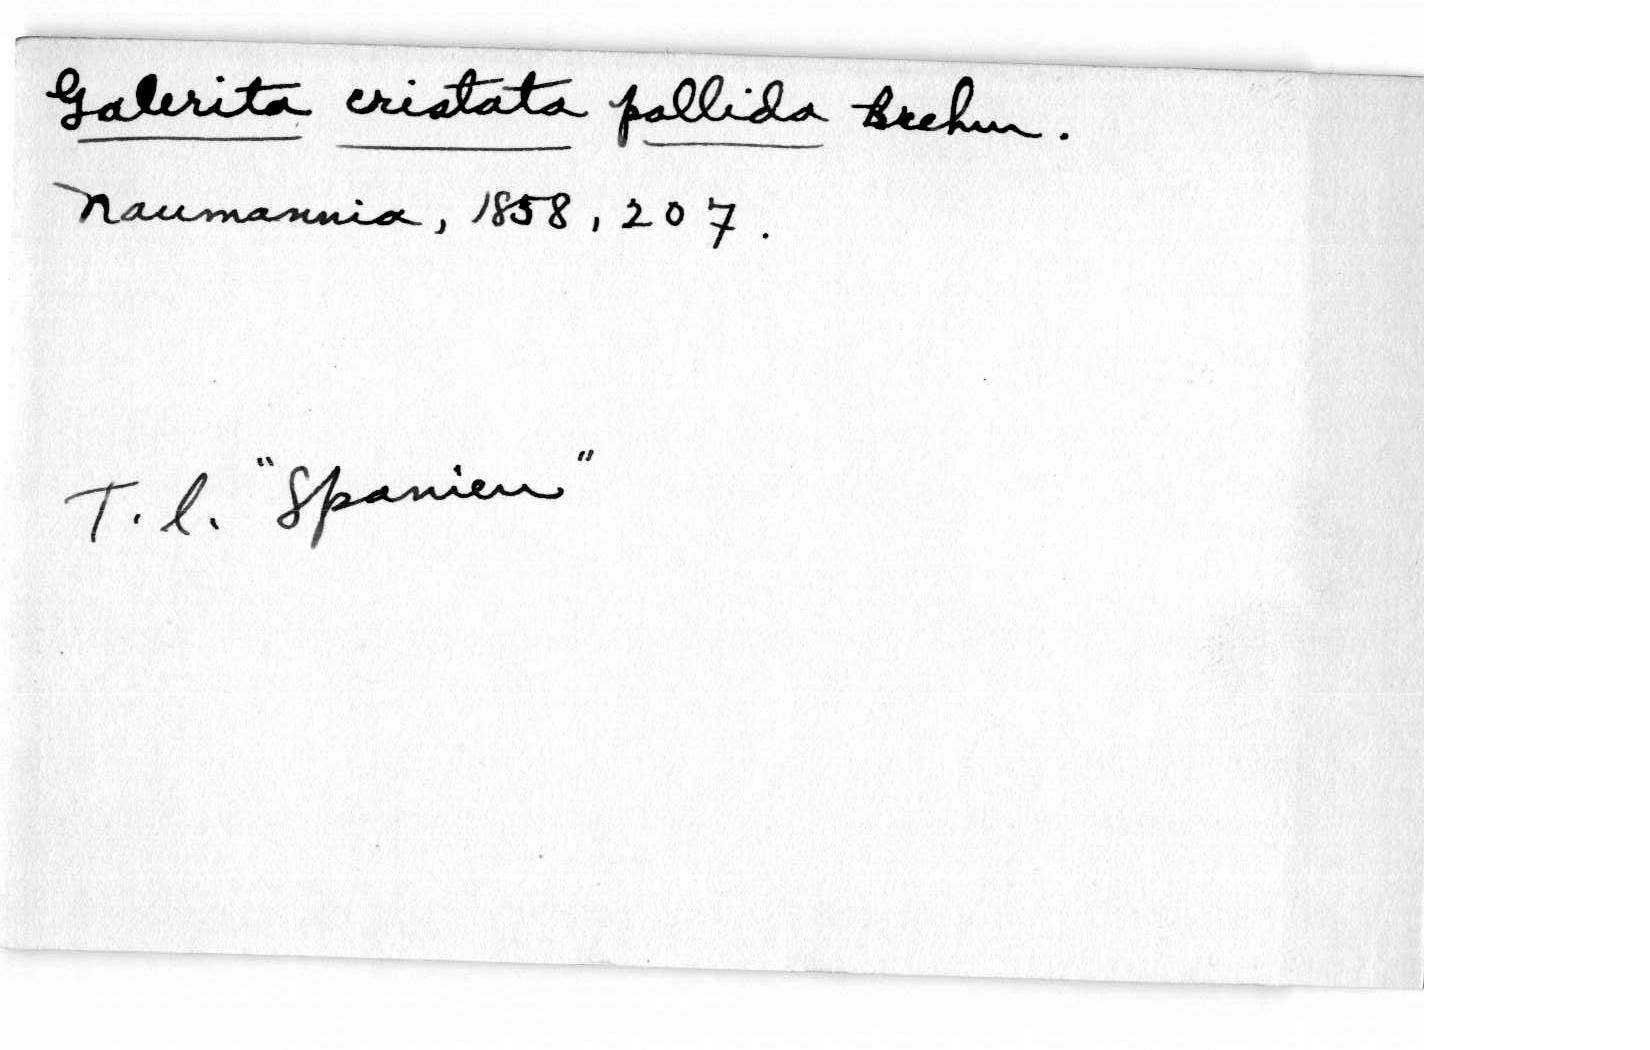 Galerita cristata pallida Brehm.
Naumannia, 1858, 207.
T. l. "Spanien"